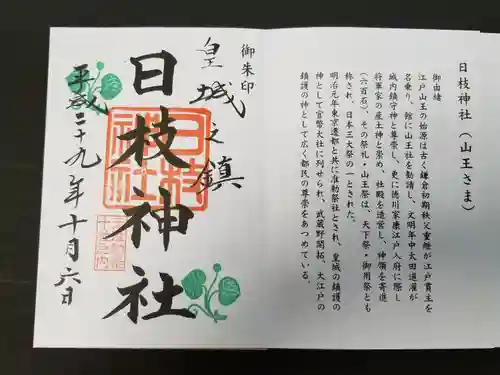 日枝神社(山王さま)
御由緒
江戸山王の始原は古く鎌倉初期秩父重継が江戸貫主を
名乗り、館に山王社を勧請し、文明年中太田道灌が
城内鎮守神と尊崇し、更に徳川家康江戸入府に際し
将軍家の産土神と崇め、社殿を造営し、神領を寄進
(六百石)、その祭礼・山王祭は、天下祭・御用祭とも
称され、日本三大祭の一とされた。
明治元年東京遷都と共に准勅祭社とされ、皇城の鎮護の
神として官幣大社に列せられ、武蔵野開拓、大江戸の
鎮護の神として広く都民の尊崇をあつめている。
御朱印
皇城之鎮
日枝神社
日枝神社
平成二十九年十月六日